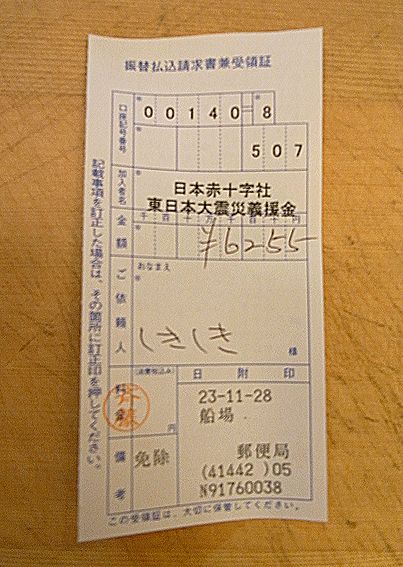 振替払込請求書兼受領証
口座記号番号
00140-8
507
加入者名
日本赤十字社
東日本大震災義援金
金額
千百十万千百十円
¥6255
ご依頼人
おなまえ
様
料金
(消費税込み)
円
斉藤
日附印
23-11-28
船場
郵便局
(41442 )05
N91760038
備考
免除
記載事項を訂正した場合は、その箇所に訂正印を押してください。
この受領証は、大切に保管してください。